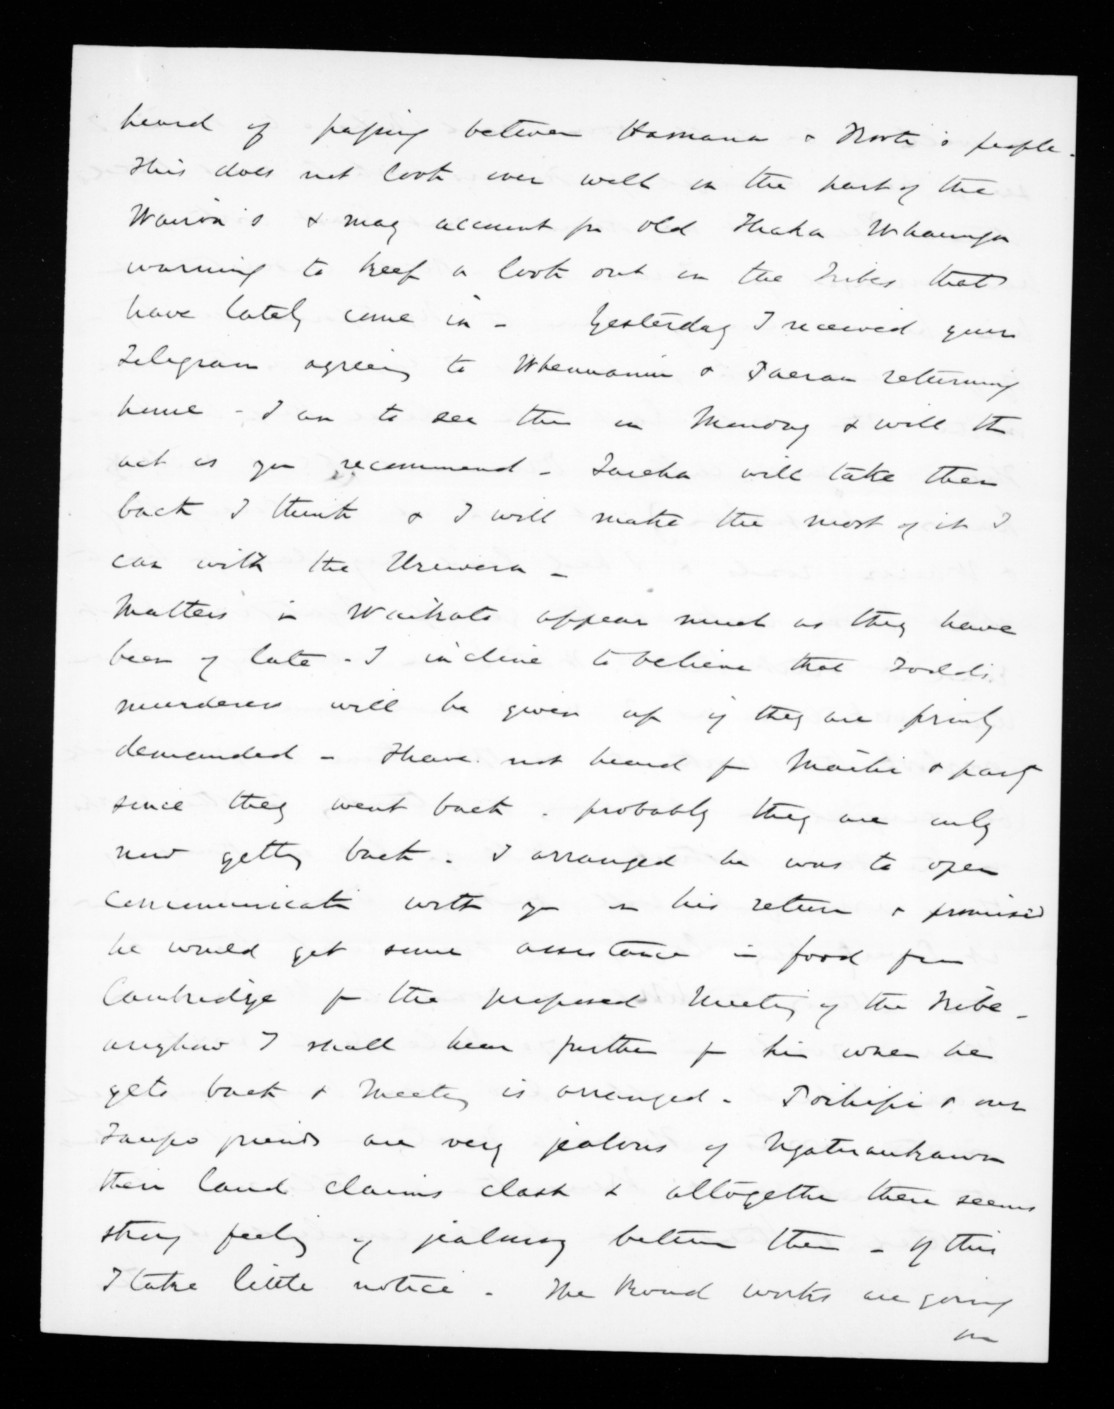 heard of passing between Hamana & Kooti's people.
This does not look over well on the part of the
Wairoa's & may account for old Ihaka Whaanga
warning to keep a look out on the Tribes that
have lately come in - Yesterday I received your
Telegram agreeing to Whenuanui & Paerau returning
home - I am to see them on Monday & will th
act as you recommend - Tareha will take them
back I think & I will make the most of it I
can with the Urewera -
Matters in Waikato appear much as they have
been of late - I incline to believe that Todds
murderers will be given up if they are firmly
demanded - I have not heard fr & party
since they went back. probably they are only
now getting back. I arranged he was to open
communicati with you on his return & promised
he would get some assistance in food from
Cambridge for the proposed Meeting of the Tribe -
anyhow I shall hear further fr him when he
gets back & Meeting is arranged - Poihipi & our
Taupo friends are very jealous of Ngatiraukawa
their land claims clash & altogether there seems
strong feeling of jealousy between them - Of this
I take little notice. The Road works are going
on